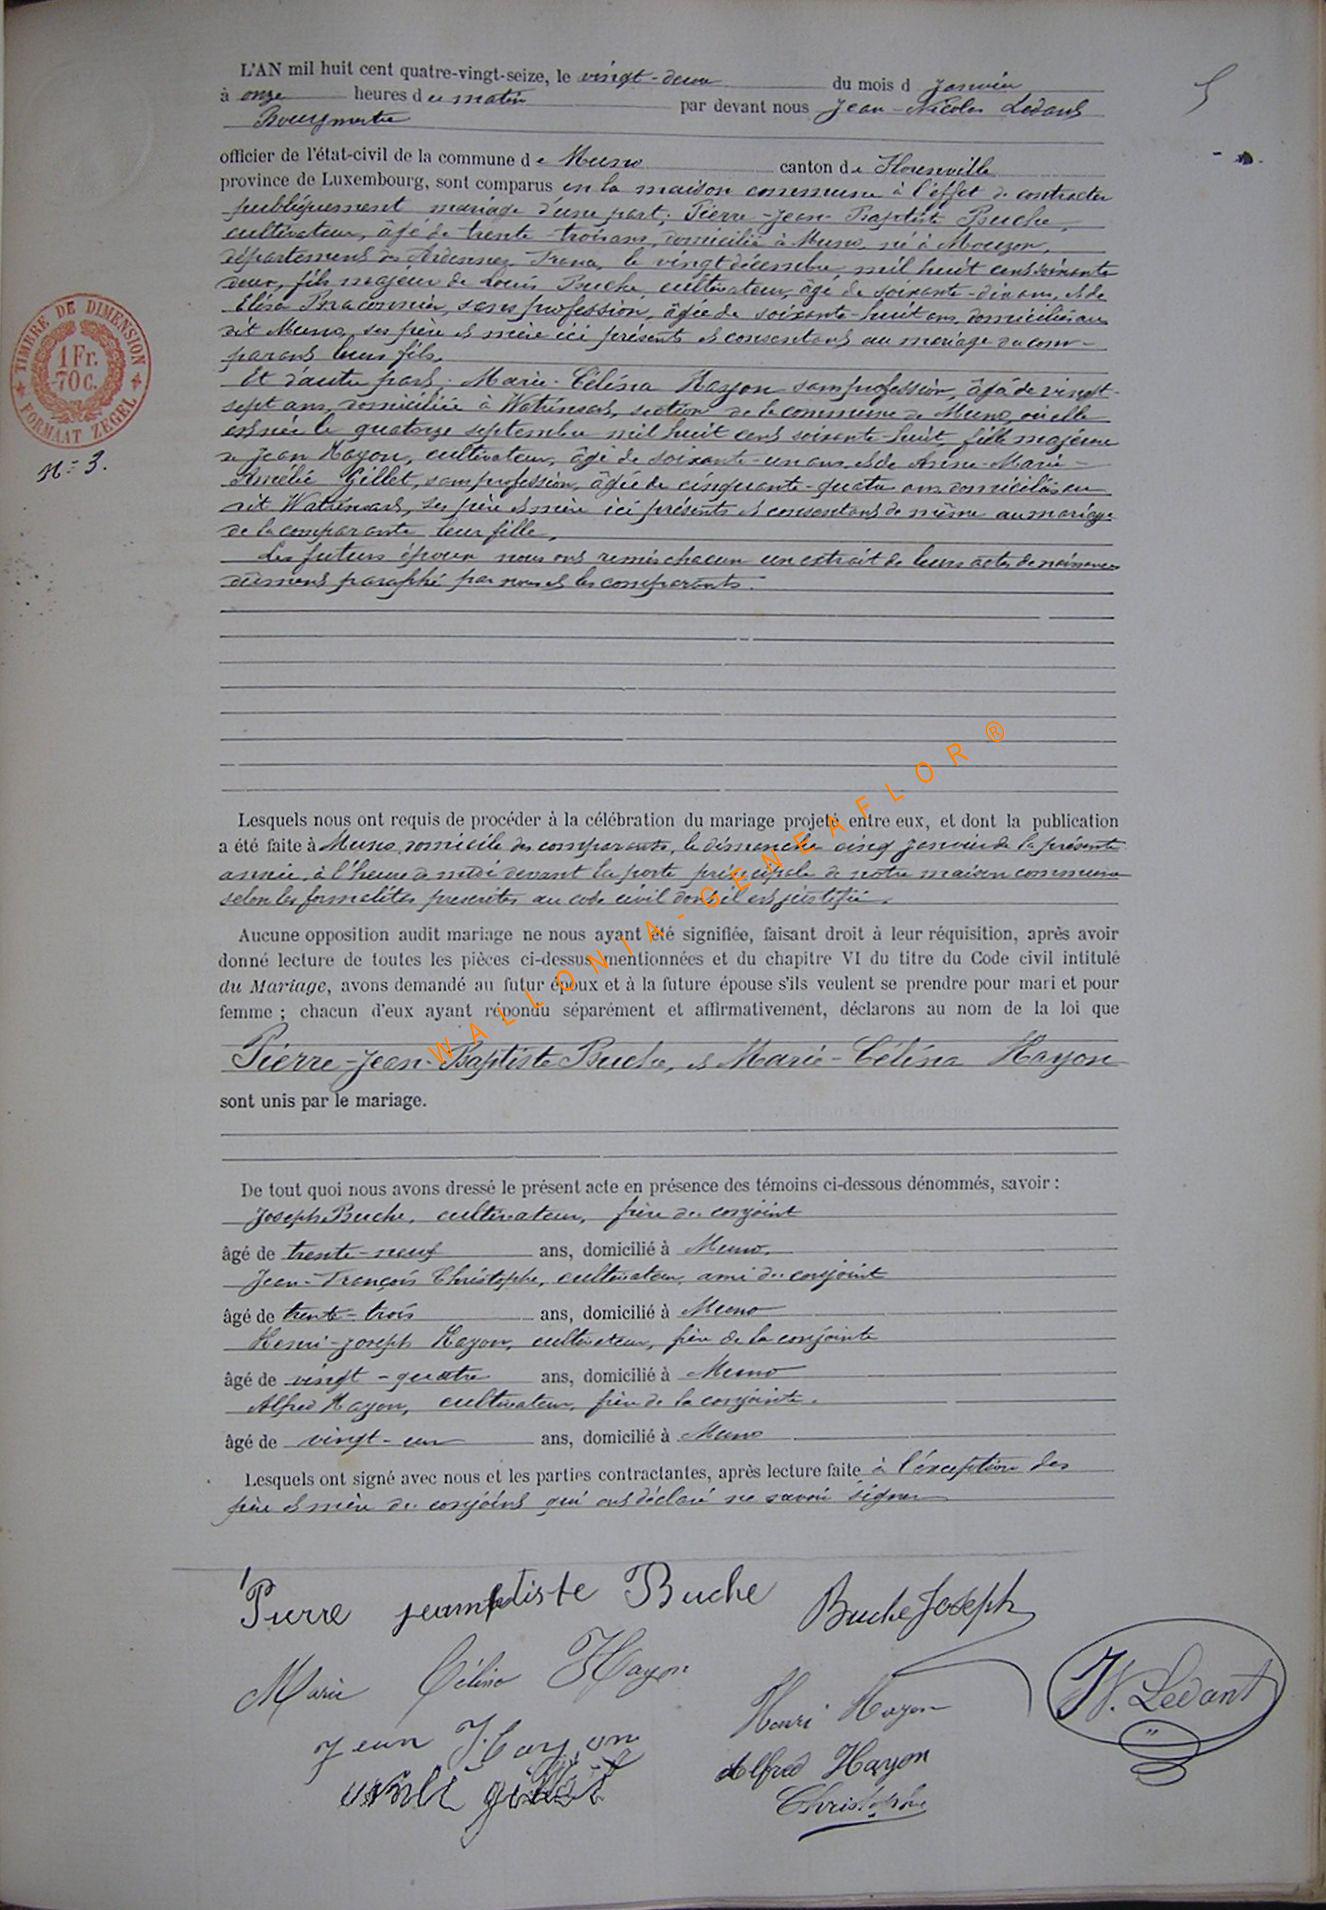 L'AN mil huit cent quatre-vingt-seize, le vingt-deux du mois d Janvier
à onze heures d u matin par devant nous Jean-Nicolas Ledant
Bourgmestre
officier de l'état-civil de la commune d e Muno canton d e Florenville
province de Luxembourg, sont comparus en la maison commune à l'effet de contracter
publiquement mariage d'une part, Pierre-Jean-Baptiste Buche,
cultivateur, âgé de trente-trois ans, domicilié à Muno, né à Mouzon,
département des Ardennes, France, le vingt décembre mil huit cent soixante
deux, fils majeur de Louis Buche, cultivateur, âgé de soixante-dix ans, et de
Elisa Braconnier, sans profession, âgée de soixante-huit ans, domiciliés au
dit Muno, ses père et mère ici présents et consentants au mariage du com-
parant leur fils.
Et d'autre part, Marie-Célina Hayon sans profession, âgée de vingt-
sept ans, domiciliée à Watrinsart, section de la commune de Muno, où elle
est née le quatorze septembre mil huit cent soixante-huit, fille majeure
de Jean Hayon, cultivateur, âgé de soixante-un ans, et de Anne-Marie-
Amélie Gillet, sans profession, âgée de cinquante-quatre ans, domiciliés au
dit Watrinsart, ses père et mère ici présents et consentant de même au mariage
de la comparante leur fille.
Les futurs époux nous ont remis chacun un extrait de leurs actes de naissance
dûment paraphé par nous et les comparants.
Lesquels nous ont requis de procéder à la célébration du mariage projeté entre eux, et dont la publication
a été faite à Muno, domicile des comparants, le dimanche cinq janvier de la présente
année, à l'heure de midi devant la porte principale de notre maison commune
selon les formalités prescrites au code civil dont il est justifié.
Aucune opposition audit mariage ne nous ayant été signifiée, faisant droit à leur réquisition, après avoir
donné lecture de toutes les pièces ci-dessus mentionnées et du chapitre VI du titre du Code civil intitulé
du Mariage, avons demandé au futur époux et à la future épouse s'ils veulent se prendre pour mari et pour
femme ; chacun d'eux ayant répondu séparément et affirmativement, déclarons au nom de la loi que
Pierre-Jean-Baptiste Buche, et Marie-Célina Hayon
sont unis par le mariage.
De tout quoi nous avons dressé le présent acte en présence des témoins ci-dessous dénommés, savoir :
Joseph Buche, cultivateur, frère du conjoint
âgé de trente-neuf ans, domicilié à Muno,
Jean-François Christophe, cultivateur, ami du conjoint
âgé de trente-trois ans, domicilié à Muno
Henri-Joseph Hayon, cultivateur, frère de la conjointe
âgé de vingt-quatre ans, domicilié à Muno
Alfred Hayon, cultivateur, frère de la conjointe.
âgé de vingt-un ans, domicilié à Muno
Lesquels ont signé avec nous et les parties contractantes, après lecture faite à l'exception des
père et mère du conjoint qui ont déclaré ne savoir signer
Pierre jeanbtiste Buche
Buche Joseph
Marie Célina Hayon
Henri Hayon
JN. Ledant
Jean Hayon
Alfred Hayon
gillet
Christophe
5
TIMBRE DE DIMENSION
1 Fr.
70 c.
FORMAAT ZEGEL
N° 3.
WALLONIA-GENEAFLOR®